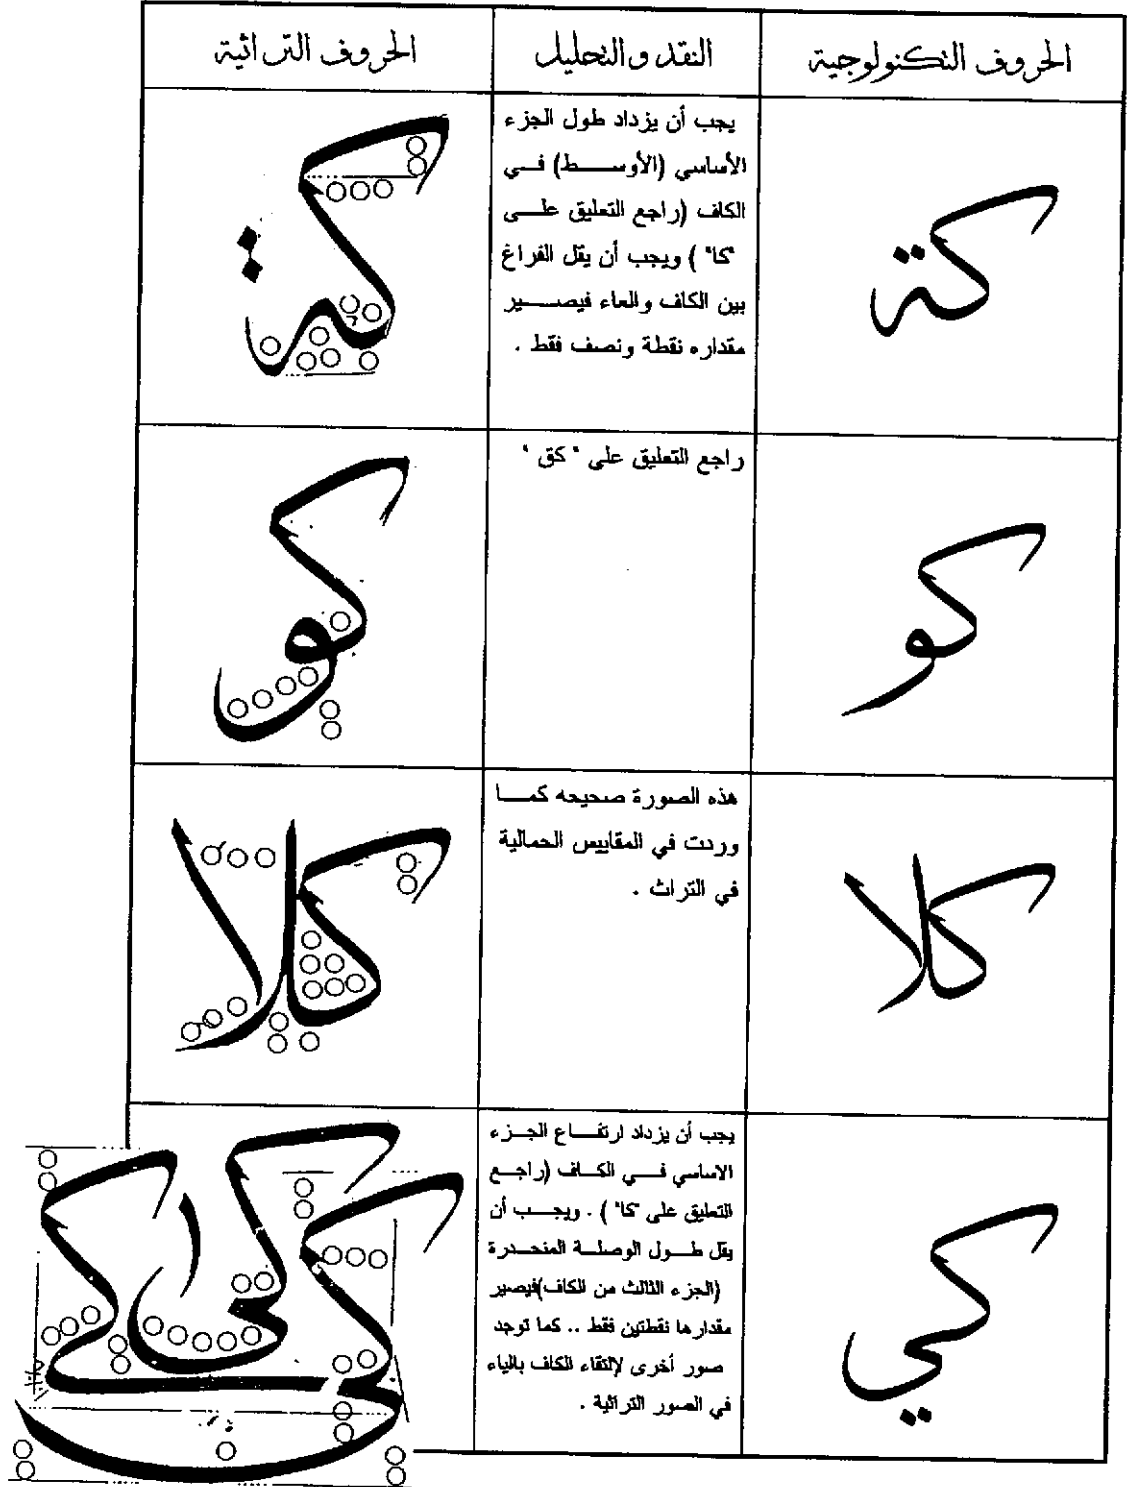 الحروف التكنولوجية
النقد والتحليل
الحروف التراثية
كة
يجب أن يزداد طول الجزء
الأساسي (الأوسط) في
الكاف (راجع التعليق على
"كا" ) ويجب أن يقل الفراغ
بين الكاف والهاء فيصير
مقداره نقطة ونصف فقط .
كة
كو
راجع التعليق على " كق "
كو
كلا
هذه الصورة صحيحه كما
وردت في المقاييس الجمالية
في التراث .
كلا
كي
يجب أن يزداد ارتفاع الجزء
الاساسي في الكاف (راجع
التعليق على "كا" ) . ويجب أن
يقل طول الوصلة المنحدرة
(الجزء الثالث من الكاف)فيصير
مقدارها نقطتين فقط .. كما توجد
صور أخرى لإلتقاء الكاف بالياء
في الصور التراثية .